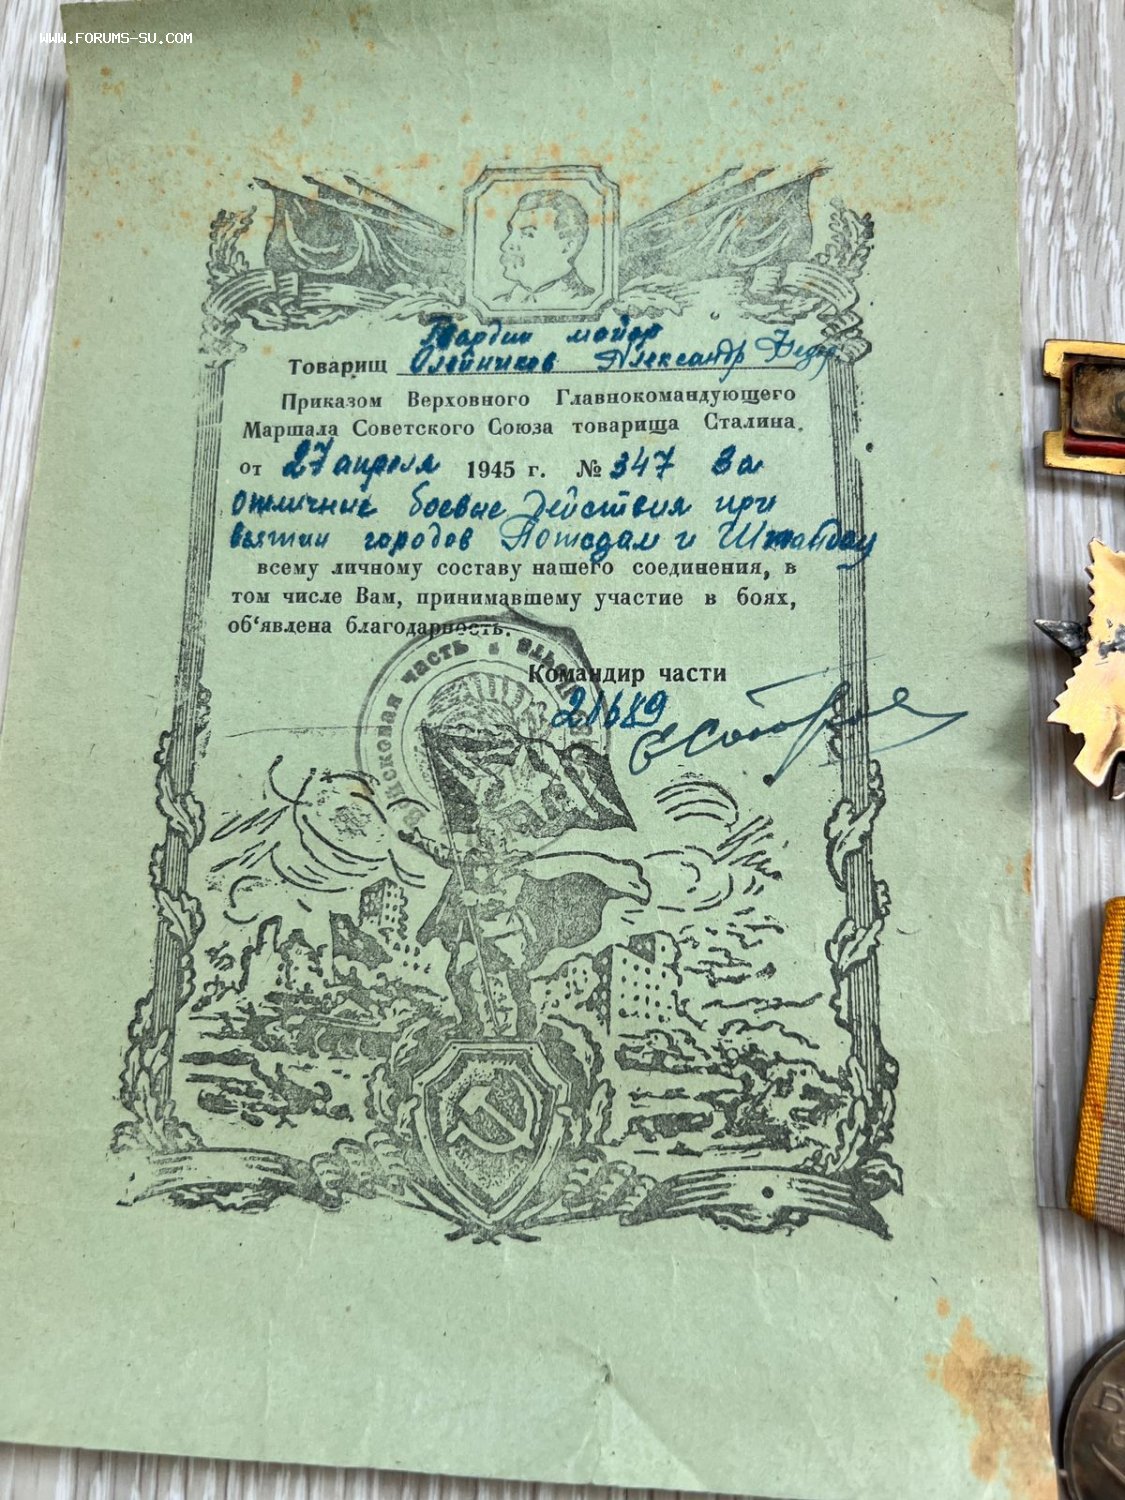 WWW.FORUMS-SU.COM
Гвардии майор
Товарищ Олейников Александр Федор.
Приказом Верховного Главнокомандующего
Маршала Советского Союза товарища Сталина.
от 27 апреля 1945 г. № 347 За
отличные боевые действия при
взятии городов Потсдам и Шпандау
всему личному составу нашего соединения, в
том числе Вам, принимавшему участие в боях,
об‘явлена благодарность.
Командир части
21689
войсковая часть